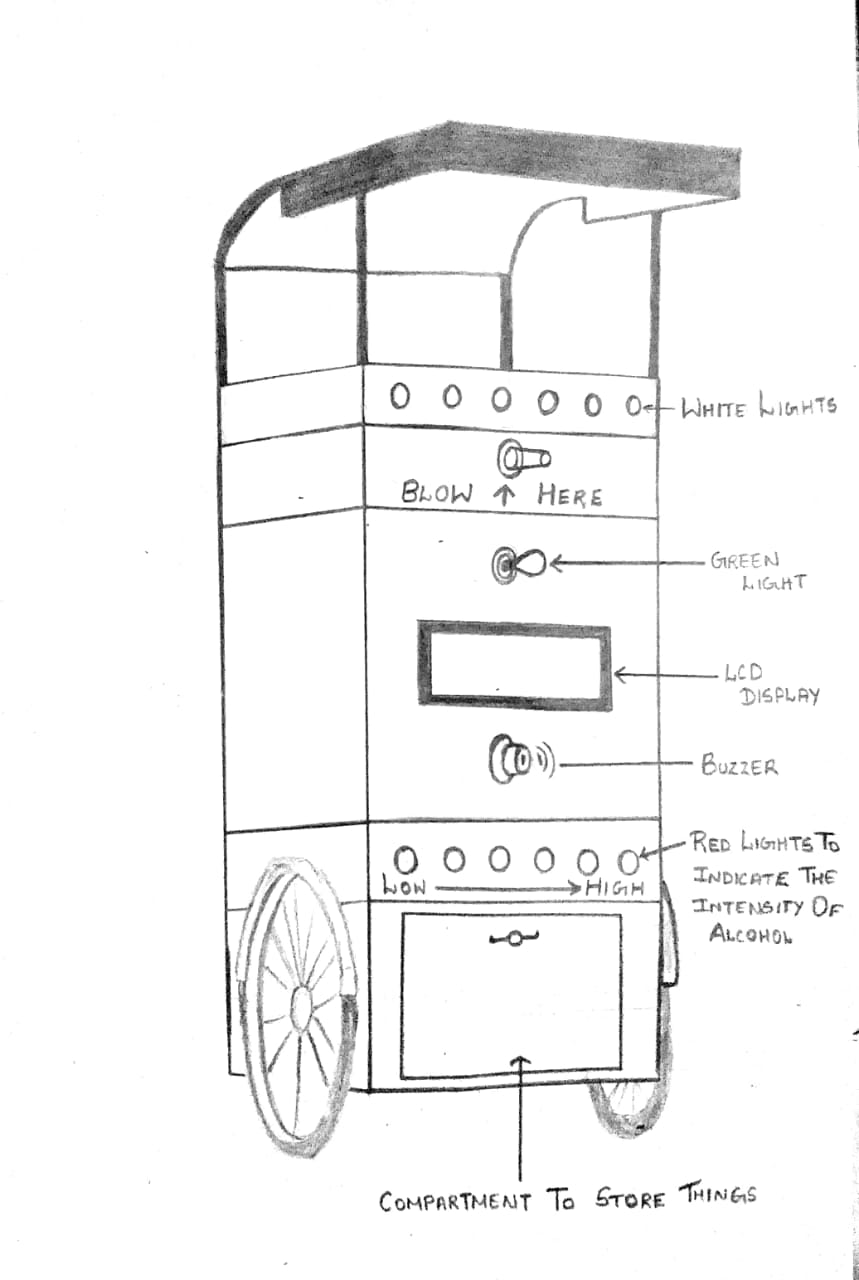 WHITE LIGHTS
BLOW ↑ HERE
GREEN
LIGHT
LCD
DISPLAY
BUZZER
RED LIGHTS TO
INDICATE THE
INTENSITY OF
ALCOHOL
LOW → HIGH
COMPARTMENT TO STORE THINGS